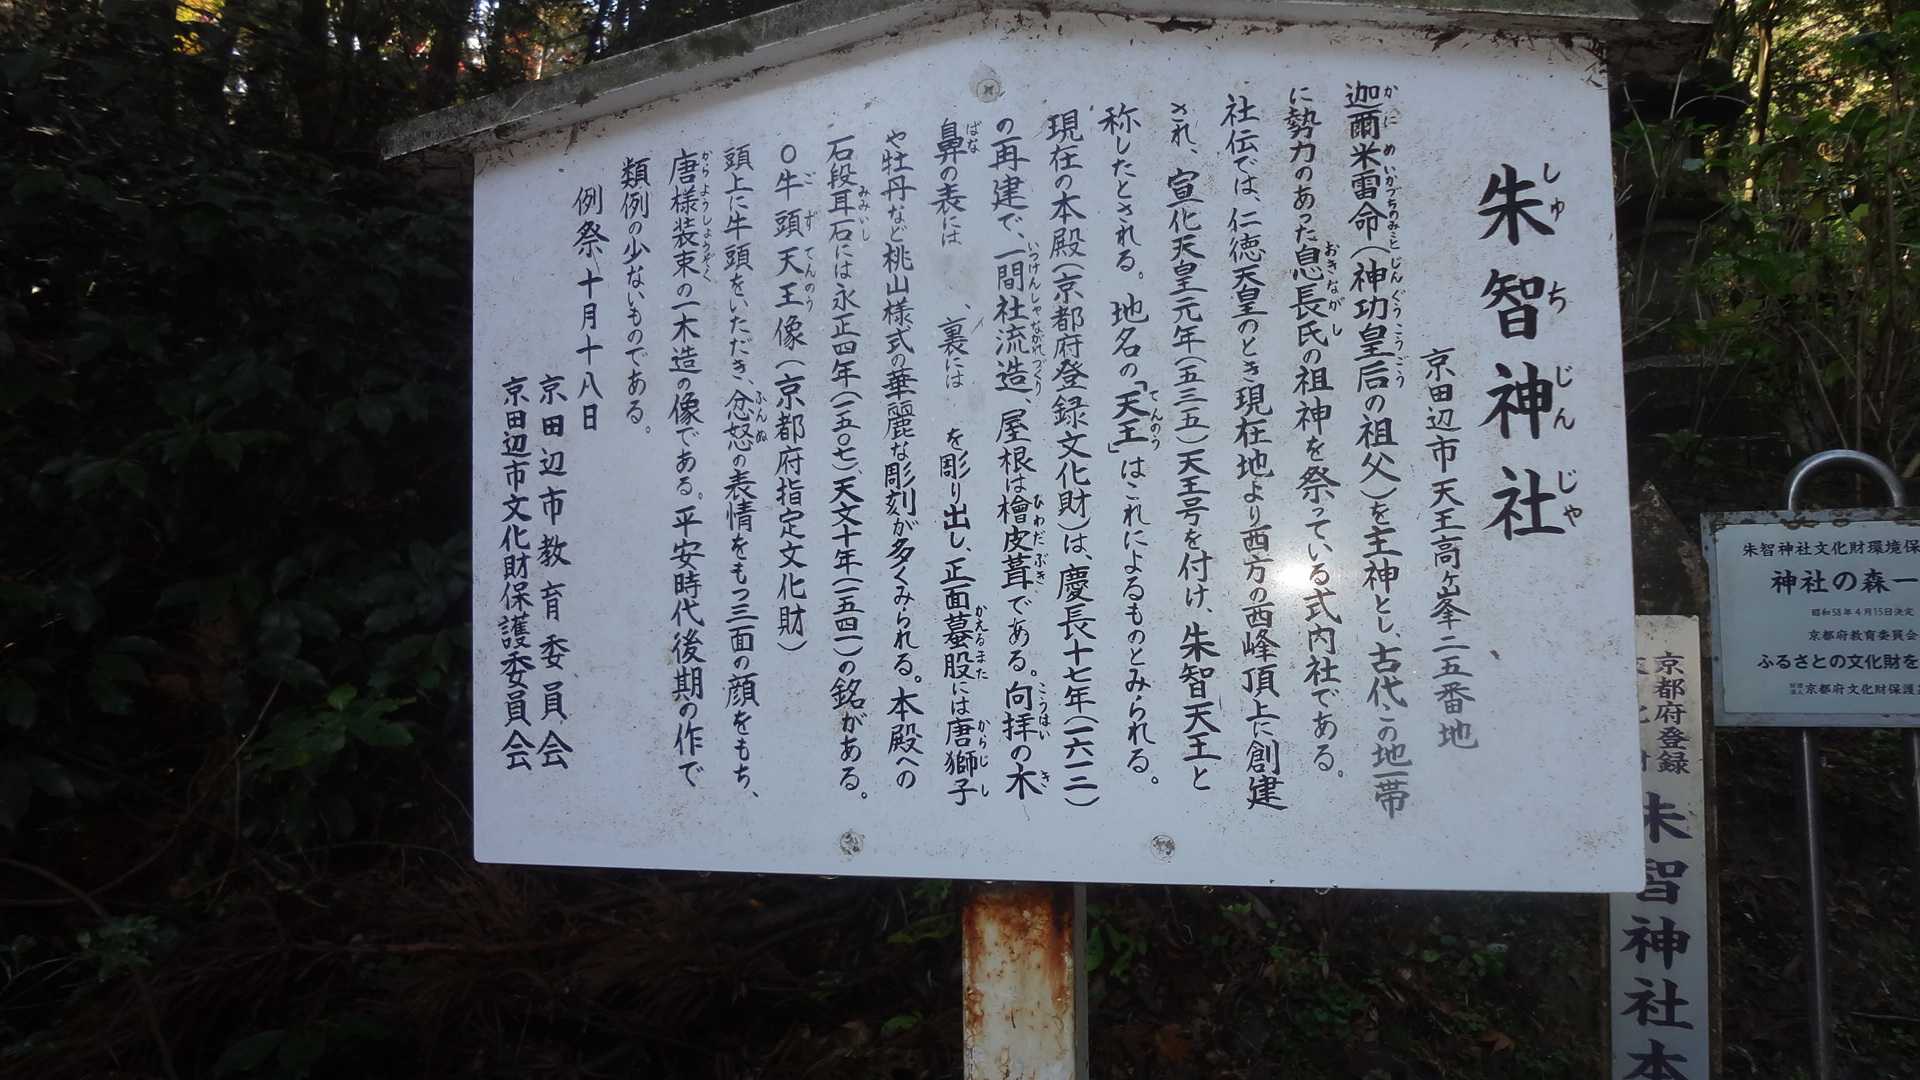 朱智神社
しゅちじんじゃ
京田辺市天王高ヶ峯二五番地
迦爾米雷命(神功皇后の祖父)を主神とし、古代この地一帯
かにめいかづちのみこと じんぐうこうごう
に勢力のあった息長氏の祖神を祭っている式内社である。
おきながし
社伝では、仁徳天皇のとき現在地より西方の西峰頂上に創建
され、宣化天皇元年(五三五)天王号を付け、朱智天王と
称したとされる。地名の「天王」はこれによるものとみられる。
てんのう
現在の本殿(京都府登録文化財)は、慶長十七年(一六一二)
の再建で、一間社流造、屋根は檜皮葺である。向拝の木
いっけんしゃながれづくり ひわだぶき こうはい き
鼻の表には 、裏には を彫り出し、正面蟇股には唐獅子
ばな かえるまた からじし
や牡丹など桃山様式の華麗な彫刻が多くみられる。本殿への
石段耳石には永正四年(一五〇七)、天文十年(一五四一)の銘がある。
みみいし
○牛頭天王像(京都府指定文化財)
ごずてんのう
頭上に牛頭をいただき、忿怒の表情をもつ三面の顔をもち、
ふんぬ
唐様装束の一木造の像である。平安時代後期の作で
からようしょうぞく
類例の少ないものである。
例祭 十月十八日
京田辺市教育委員会
京田辺市文化財保護委員会
朱智神社文化財環境保
神社の森一
昭和58年4月15日決定
京都府教育委員会
ふるさとの文化財を
財団法人京都府文化財保護
京都府登録
朱智神社本